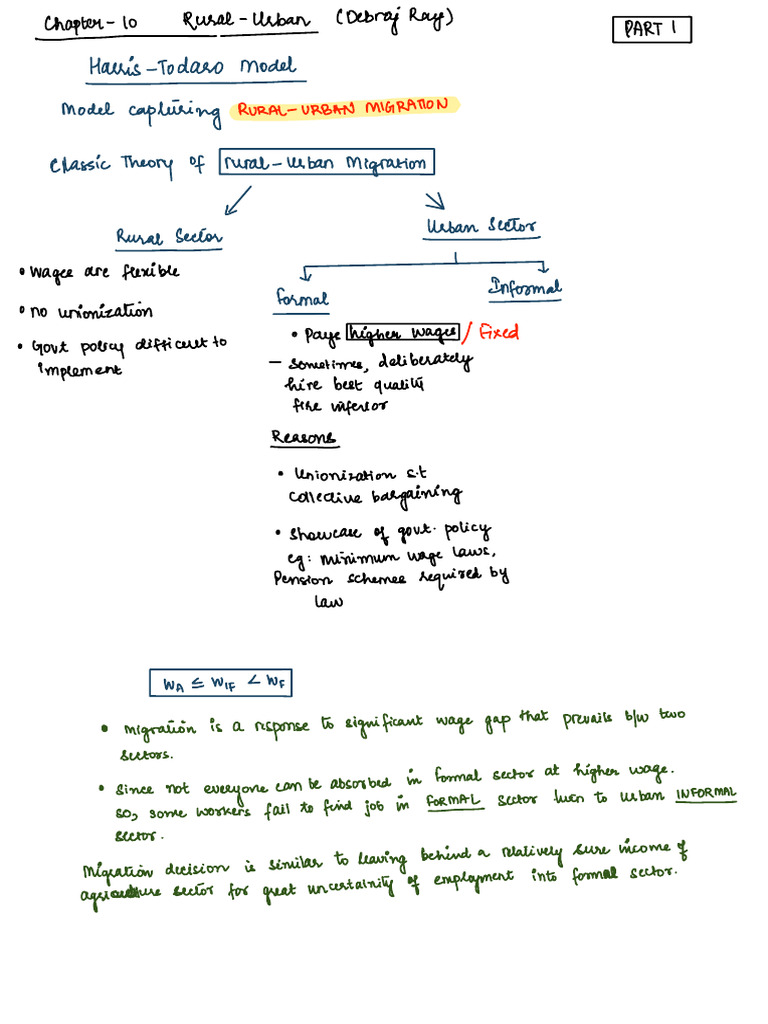 Chapter-10 Rural-Urban (Debraj Ray)
PART 1
Harris-Todaro Model
Model capturing RURAL-URBAN MIGRATION
Classic Theory of rural-urban Migration
Rural Sector
Urban Sector
• Wages are flexible
• no unionization
• Govt policy difficult to
implement
Formal
Informal
• Pays higher wages / Fixed
- Sometimes, deliberately
hire best quality
fire inferior
Reasons
• Unionization s.t
collective bargaining
• Showcase of govt. policy
eg: minimum wage laws,
Pension schemes required by
law
WA ≤ WIF < WF
• Migration is a response to significant wage gap that prevails b/w two
sectors.
• Since not everyone can be absorbed in formal sector at higher wage.
so, some workers fail to find job in FORMAL sector turn to urban INFORMAL
sector.
Migration decision is similar to leaving behind a relatively sure income of
agriculture sector for great uncertainity of employment into formal sector.